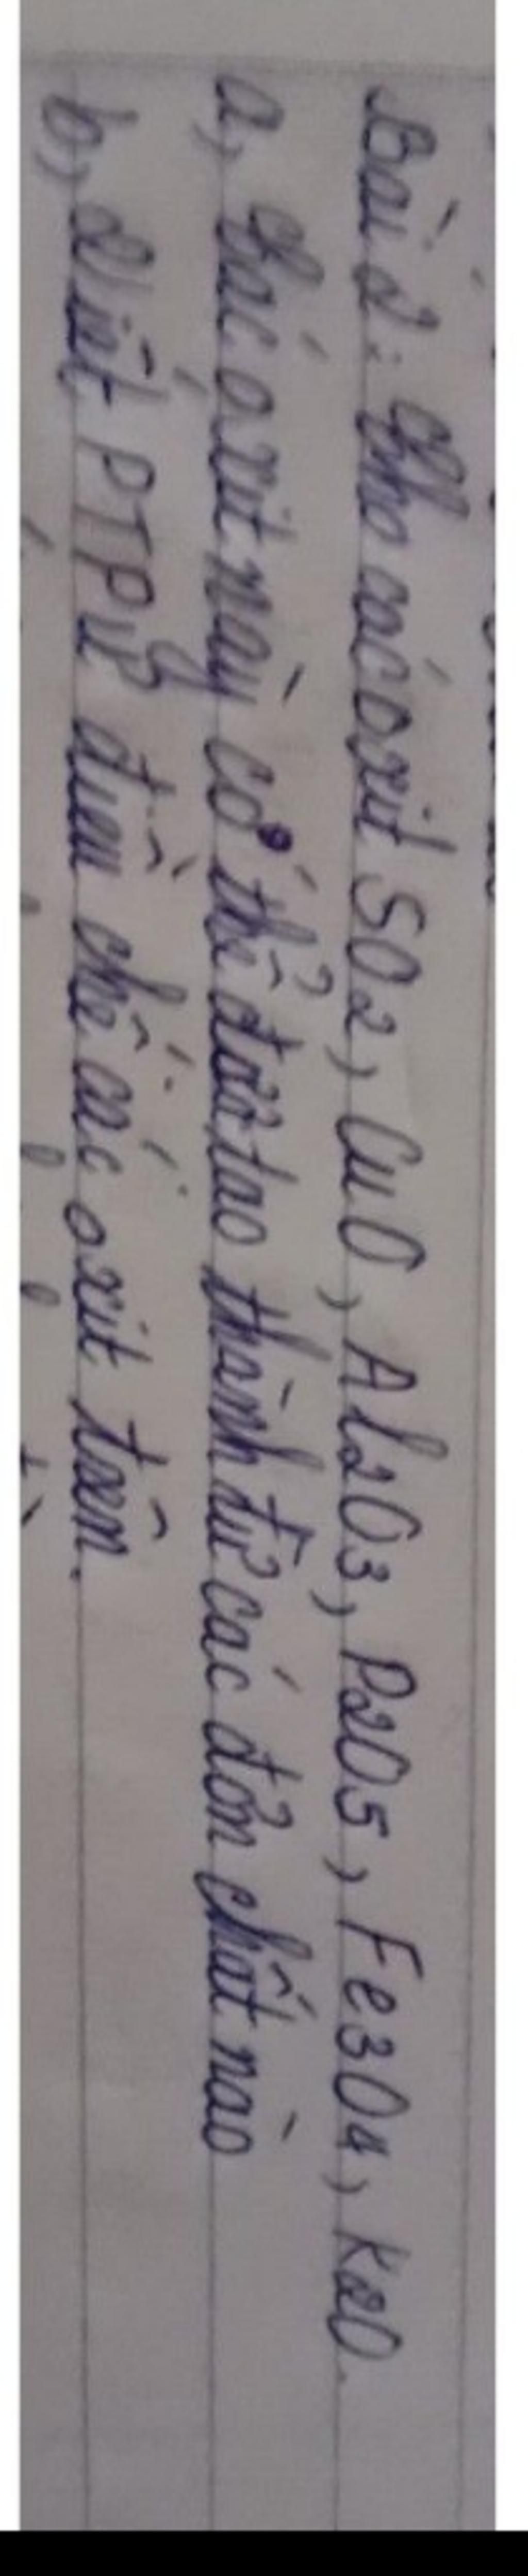 Bài 2: Cho các oxit SO2, CuO, Al2O3, P2O5, Fe3O4, K2O.
a, Các oxit này có thể được tạo thành từ các đơn chất nào
b, Viết PTPƯ điều chế các oxit trên.